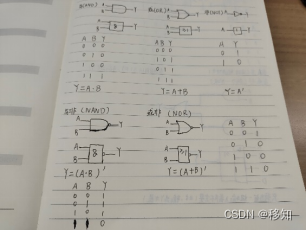 与(AND) 或(OR) 非(NOT)
A
B
&
Y
A
B
≥1
Y
A
1
Y
A B Y
0 0 0
0 1 0
1 0 0
1 1 1
A B Y
0 0 0
0 1 1
1 0 1
1 1 1
A Y
0 1
1 0
Y=A·B
Y=A+B
Y=A'
与非(NAND)
或非(NOR)
A
B
Y
A
B
&
Y
A
B
Y
A
B
≥1
Y
A B Y
0 0 1
0 1 0
1 0 0
1 1 0
Y=(A·B)'
Y=(A+B)'
A B Y
0 0 1
0 1 1
0
CSDN @移知